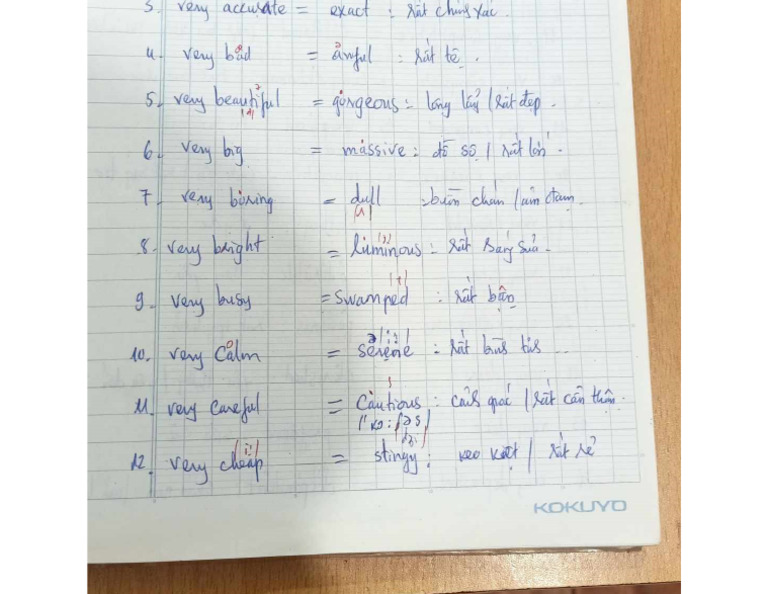 3. very accurate = exact : rất chính xác.
4. very bad = awful : rất tệ.
5. very beautiful = gorgeous : lộng lẫy / rất đẹp.
6. very big = massive : đồ sộ / rất lớn.
7. very boring = dull : buồn chán / ảm đạm.
8. very bright = luminous : rất sáng sủa.
9. very busy = swamped : rất bận
10. very calm = serene : rất
11. very careful = cautious : / rất cẩn thận.
12. very cheap = stingy : keo kiệt / rất rẻ
KOKUYO